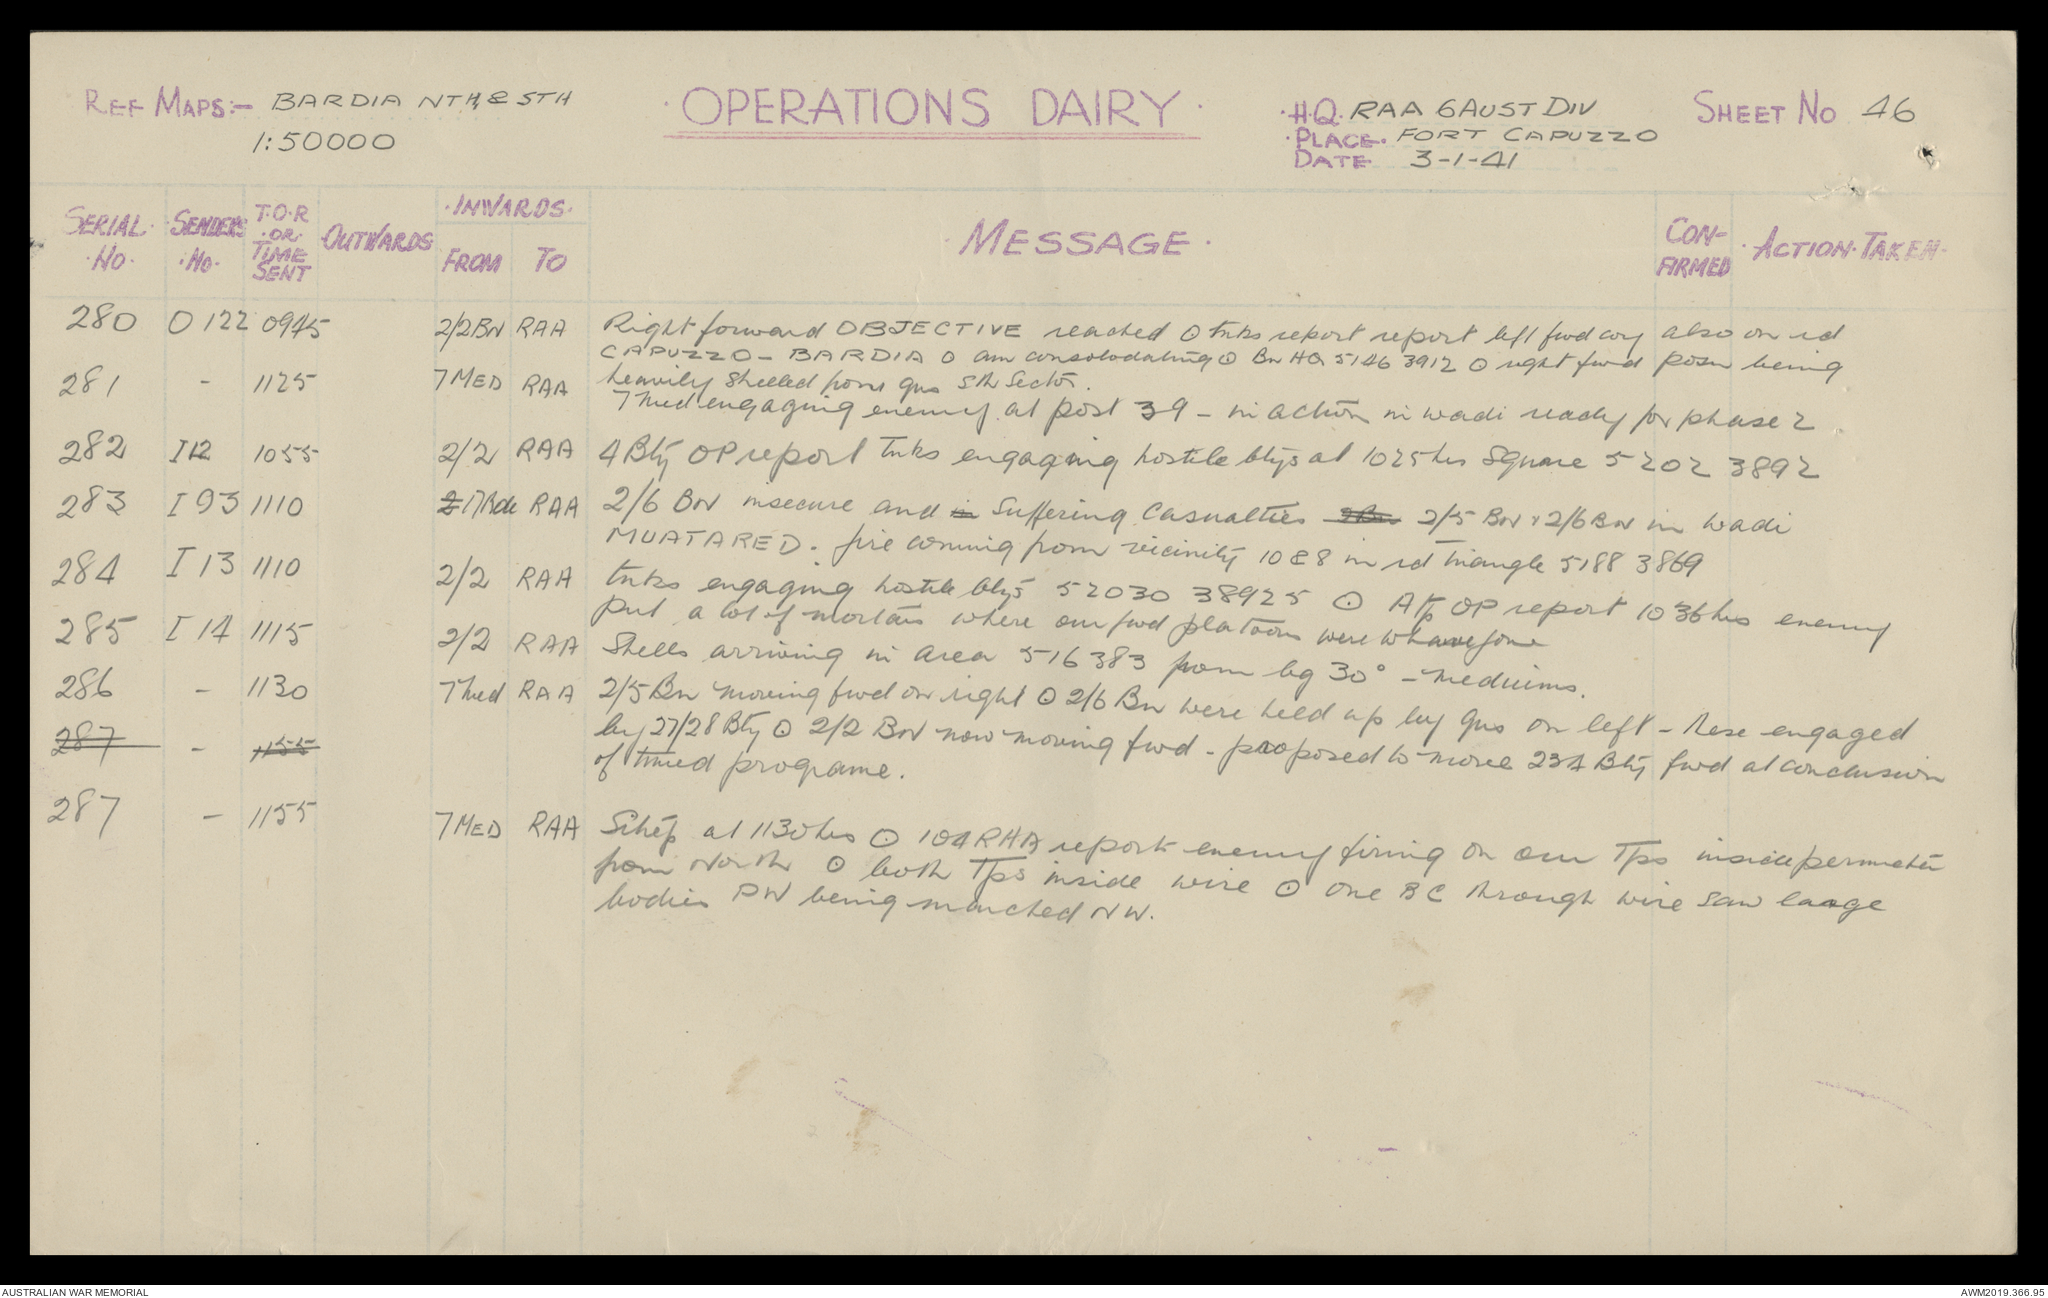 REF MAPS:- BARDIA NTH & STH
1:50000
OPERATIONS DAIRY
H.Q. RAA 6 AUST DIV
PLACE. FORT CAPUZZO
DATE 3-1-41
SHEET NO 46
SERIAL NO. SENDERS NO. T.O.R OR TIME SENT OUTWARDS INWARDS FROM TO MESSAGE CON-FIRMED ACTION TAKEN
280 O 122 0945 2/2 BN RAA Right forward OBJECTIVE reached O tnks report report left fwd coy also on rd
CAPUZZO - BARDIA O am consolodating O Bn HQ 5146 3912 O right fwd posn being
heavily shelled from gns Sth Sector.
281 - 1125 7 MED RAA 7 Med engaging enemy at post 39 - in action in wadi ready for phase 2
282 I12 1055 2/2 RAA 4 Bty OP report Tnks engaging hostile btys at 1025 hrs Square 5202 3892
283 I 93 1110 2 17 Bde RAA 2/6 BN insecure and in suffering casualties 2/5 BN & 2/6 BN in wadi
MUATARED. fire coming from vicinity 10 & 8 in rd triangle 5188 3869
284 I 13 1110 2/2 RAA Tnks engaging hostile btys 52030 38925 O A Tp OP report 1036 hrs enemy
put a lot of mortars where our fwd platoons were
285 I 14 1115 2/2 RAA Shells arriving in area 516383 from bg 30° - mediums.
286 - 1130 7 Med RAA 2/5 Bn moving fwd on right O 2/6 Bn were held up by gns on left - these engaged
by 27/28 Bty O 2/2 BN now moving fwd - proposed to move 234 Bty fwd at conclusion
of timed programe.
287 - 1155
287 - 1155 7 MED RAA Sitrep at 1130 hrs O 104 RHA report enemy firing on our Tps inside perimeter
from North O both Tps inside wire O One BC through wire saw large
bodies PW being marched NW.
AUSTRALIAN WAR MEMORIAL
AWM2019.366.95